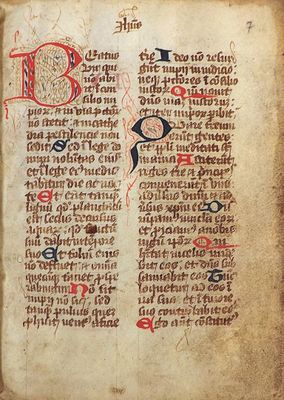 Ihus
7
Beatus
vir qui
non abi
it in con
silio im
pior et in via pctor
non stetit et in cathedra
pestilencie non
sedit Sed in lege do
mini voluntas eius
et in lege eius medi
tabitur die ac noc
te Et erit tamqm
lignum qd plantatum
est secus decursus
aquar qd fructum
suum dabit in tempore
suo Et folium eius
non defluet et omnia
quecumqz faciet prospe
rabuntur Non sic
impii non sic sed
tamqm pulvis quem
proicit ventus a facie
terre Ideo non resur
gunt impii in iudicio
neqz pctores in consilio
iustorum Qm novit
dns viam iustorum
et iter impiorum
Quare fremuerunt
et ppli meditati st
inania Astiterunt
reges tre et princi
pes convenerunt in unum
adversus dnm et ad
versus xpm eius Dirum
pamus vincula eor
et proiciamus a nobis
iugum ipor Qui
habitat in celis irride
bit eos et dns sub
sannabit eos Tunc
loquetur ad eos in
ira sua et in furore
suo conturbabit eos
Ego aut constitut